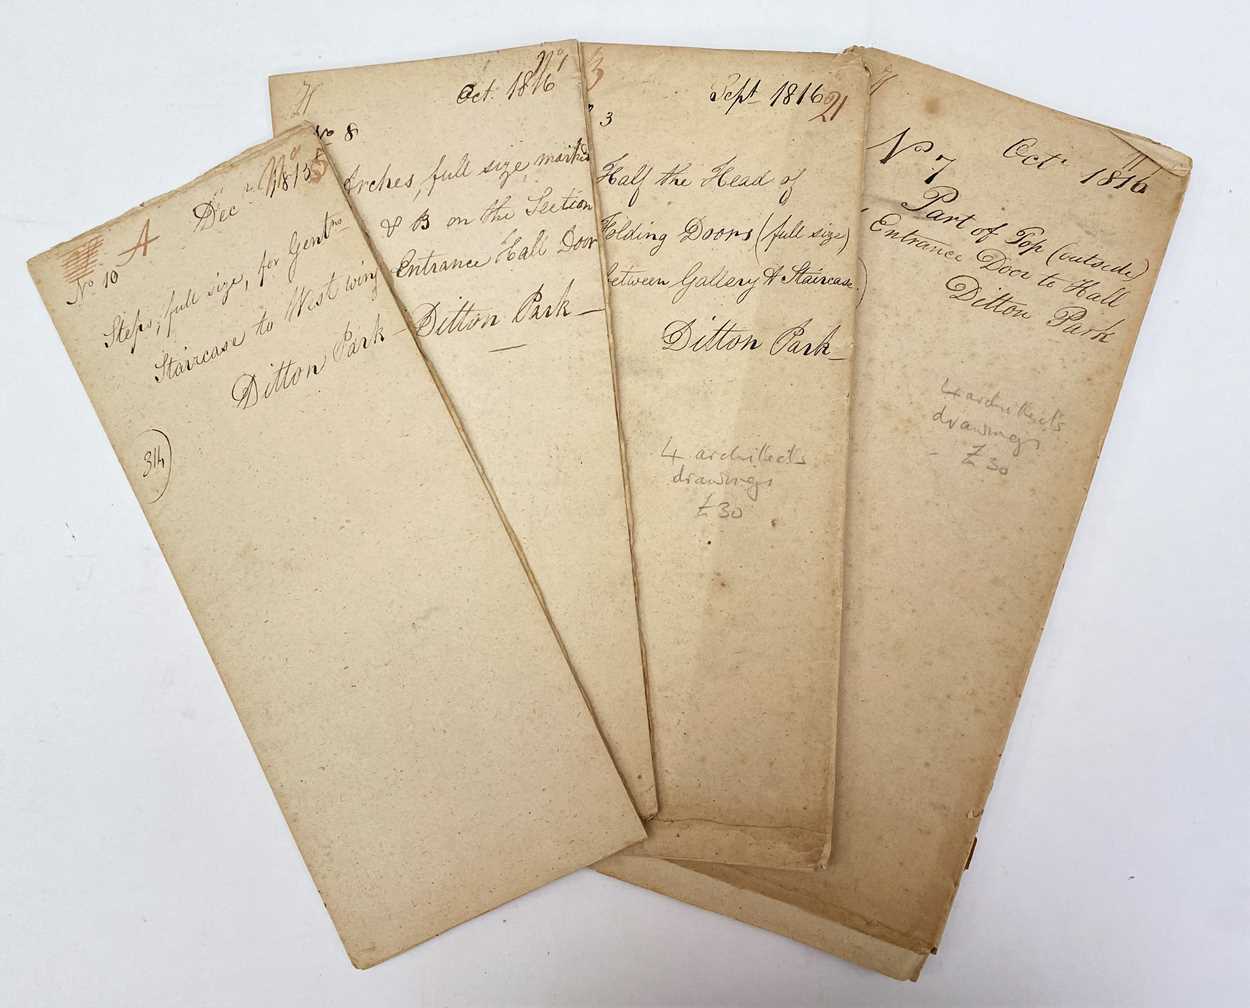 A
Decr 1815
No 10
Steps, full size, for Gentns
Staircase to West wing
Ditton Park
314
No 1
Oct. 1816
No 8
Arches, full size, marked
& B on the Section
Entrance Hall Door
Ditton Park
3
Sept 1816
21
3
Half the Head of
Folding Doors (full size)
between Gallery & Staircase.
Ditton Park
4 architects
drawings
£30
No 7
Oct 1816
Part of Top (outside)
Entrance Door to Hall
Ditton Park
4 architects
drawings
£30